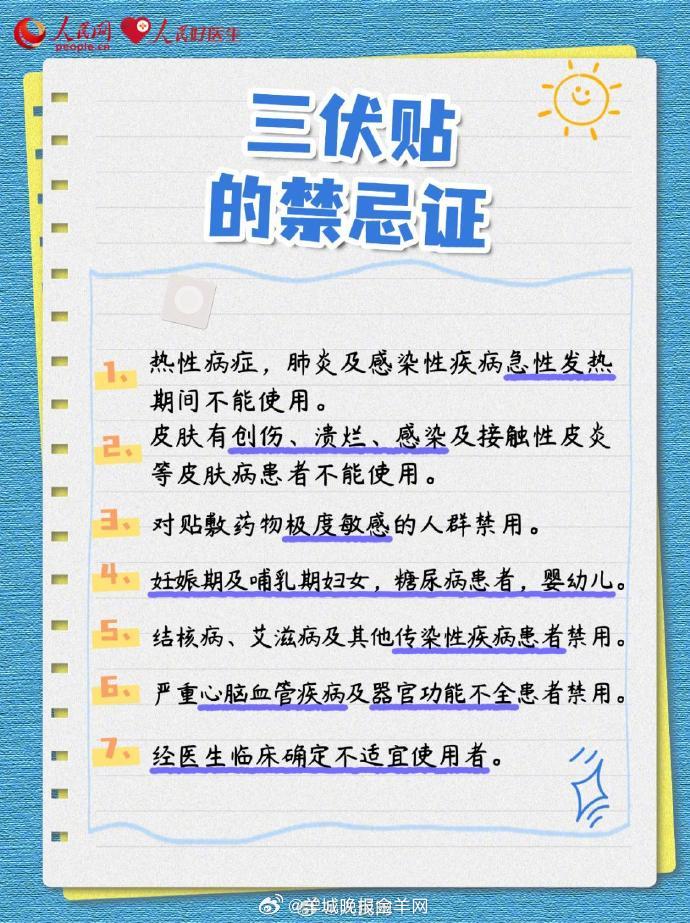 人民网
people.cn
人民好医生
三伏贴
的禁忌证
1、热性病症，肺炎及感染性疾病急性发热
期间不能使用。
2、皮肤有创伤、溃烂、感染及接触性皮炎
等皮肤病患者不能使用。
3、对贴敷药物极度敏感的人群禁用。
4、妊娠期及哺乳期妇女，糖尿病患者，婴幼儿。
5、结核病、艾滋病及其他传染性疾病患者禁用。
6、严重心脑血管疾病及器官功能不全患者禁用。
7、经医生临床确定不适宜使用者。
@羊城晚报金羊网